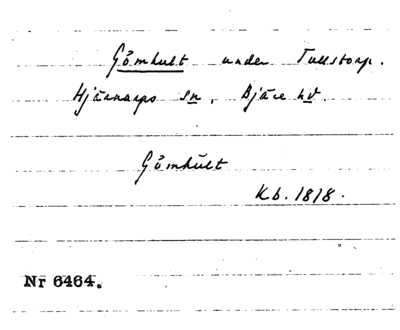 Gömhult under Tullstorp.
Hjärnarps sn, Bjäre hd.
Gömhult
Kb. 1818.
Nr 6464.